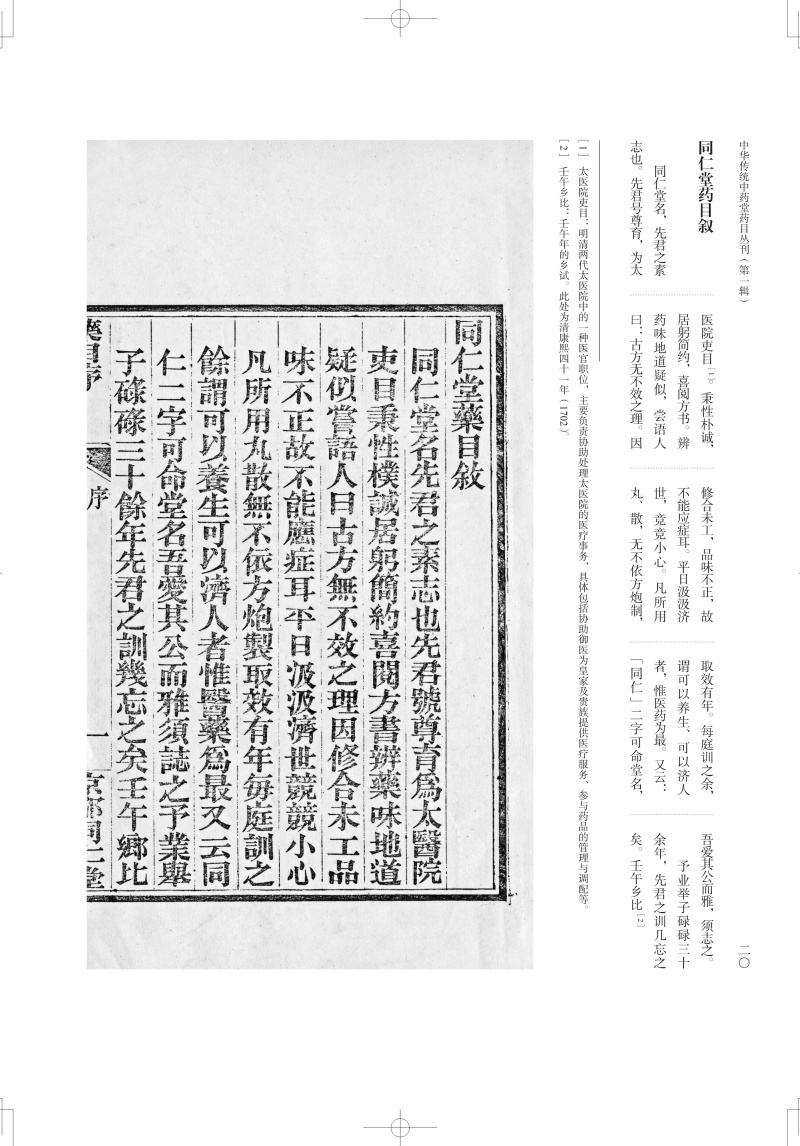 中华传统中药堂药目丛刊（第一辑）
二〇
同仁堂药目叙
同仁堂名，先君之素
志也。先君号尊育，为太
医院吏目[1]。秉性朴诚，
居躬简约，喜阅方书。辨
药味地道疑似，尝语人
曰：古方无不效之理。因
修合未工，品味不正，故
不能应症耳。平日汲汲济
世，竞竞小心。凡所用
丸、散，无不依方炮制，
取效有年。每庭训之余，
谓可以养生、可以济人
者，惟医药为最。又云：
「同仁」二字可命堂名，
吾爱其公而雅，须志之。
予业举子碌碌三十
余年，先君之训几忘之
矣。壬午乡比[2]
[1] 太医院吏目：明清两代太医院中的一种医官职位，主要负责协助处理太医院的医疗事务，具体包括协助御医为皇家及贵族提供医疗服务、参与药品的管理与调配等。
[2] 壬午乡比：壬午年的乡试。此处为清康熙四十一年（1702）。
同仁堂藥目敘
同仁堂名先君之素志也先君號尊育爲太醫院
吏目秉性樸誠居躬簡約喜閱方書辨藥味地道
疑似嘗語人曰古方無不效之理因修合未工品
味不正故不能應症耳平日汲汲濟世競競小心
凡所用丸散無不依方炮製取效有年每庭訓之
餘謂可以養生可以濟人者惟醫藥爲最又云同
仁二字可命堂名吾愛其公而雅須誌之予業舉
子碌碌三十餘年先君之訓幾忘之矣壬午鄉比
藥目序
序
一
京都同仁堂